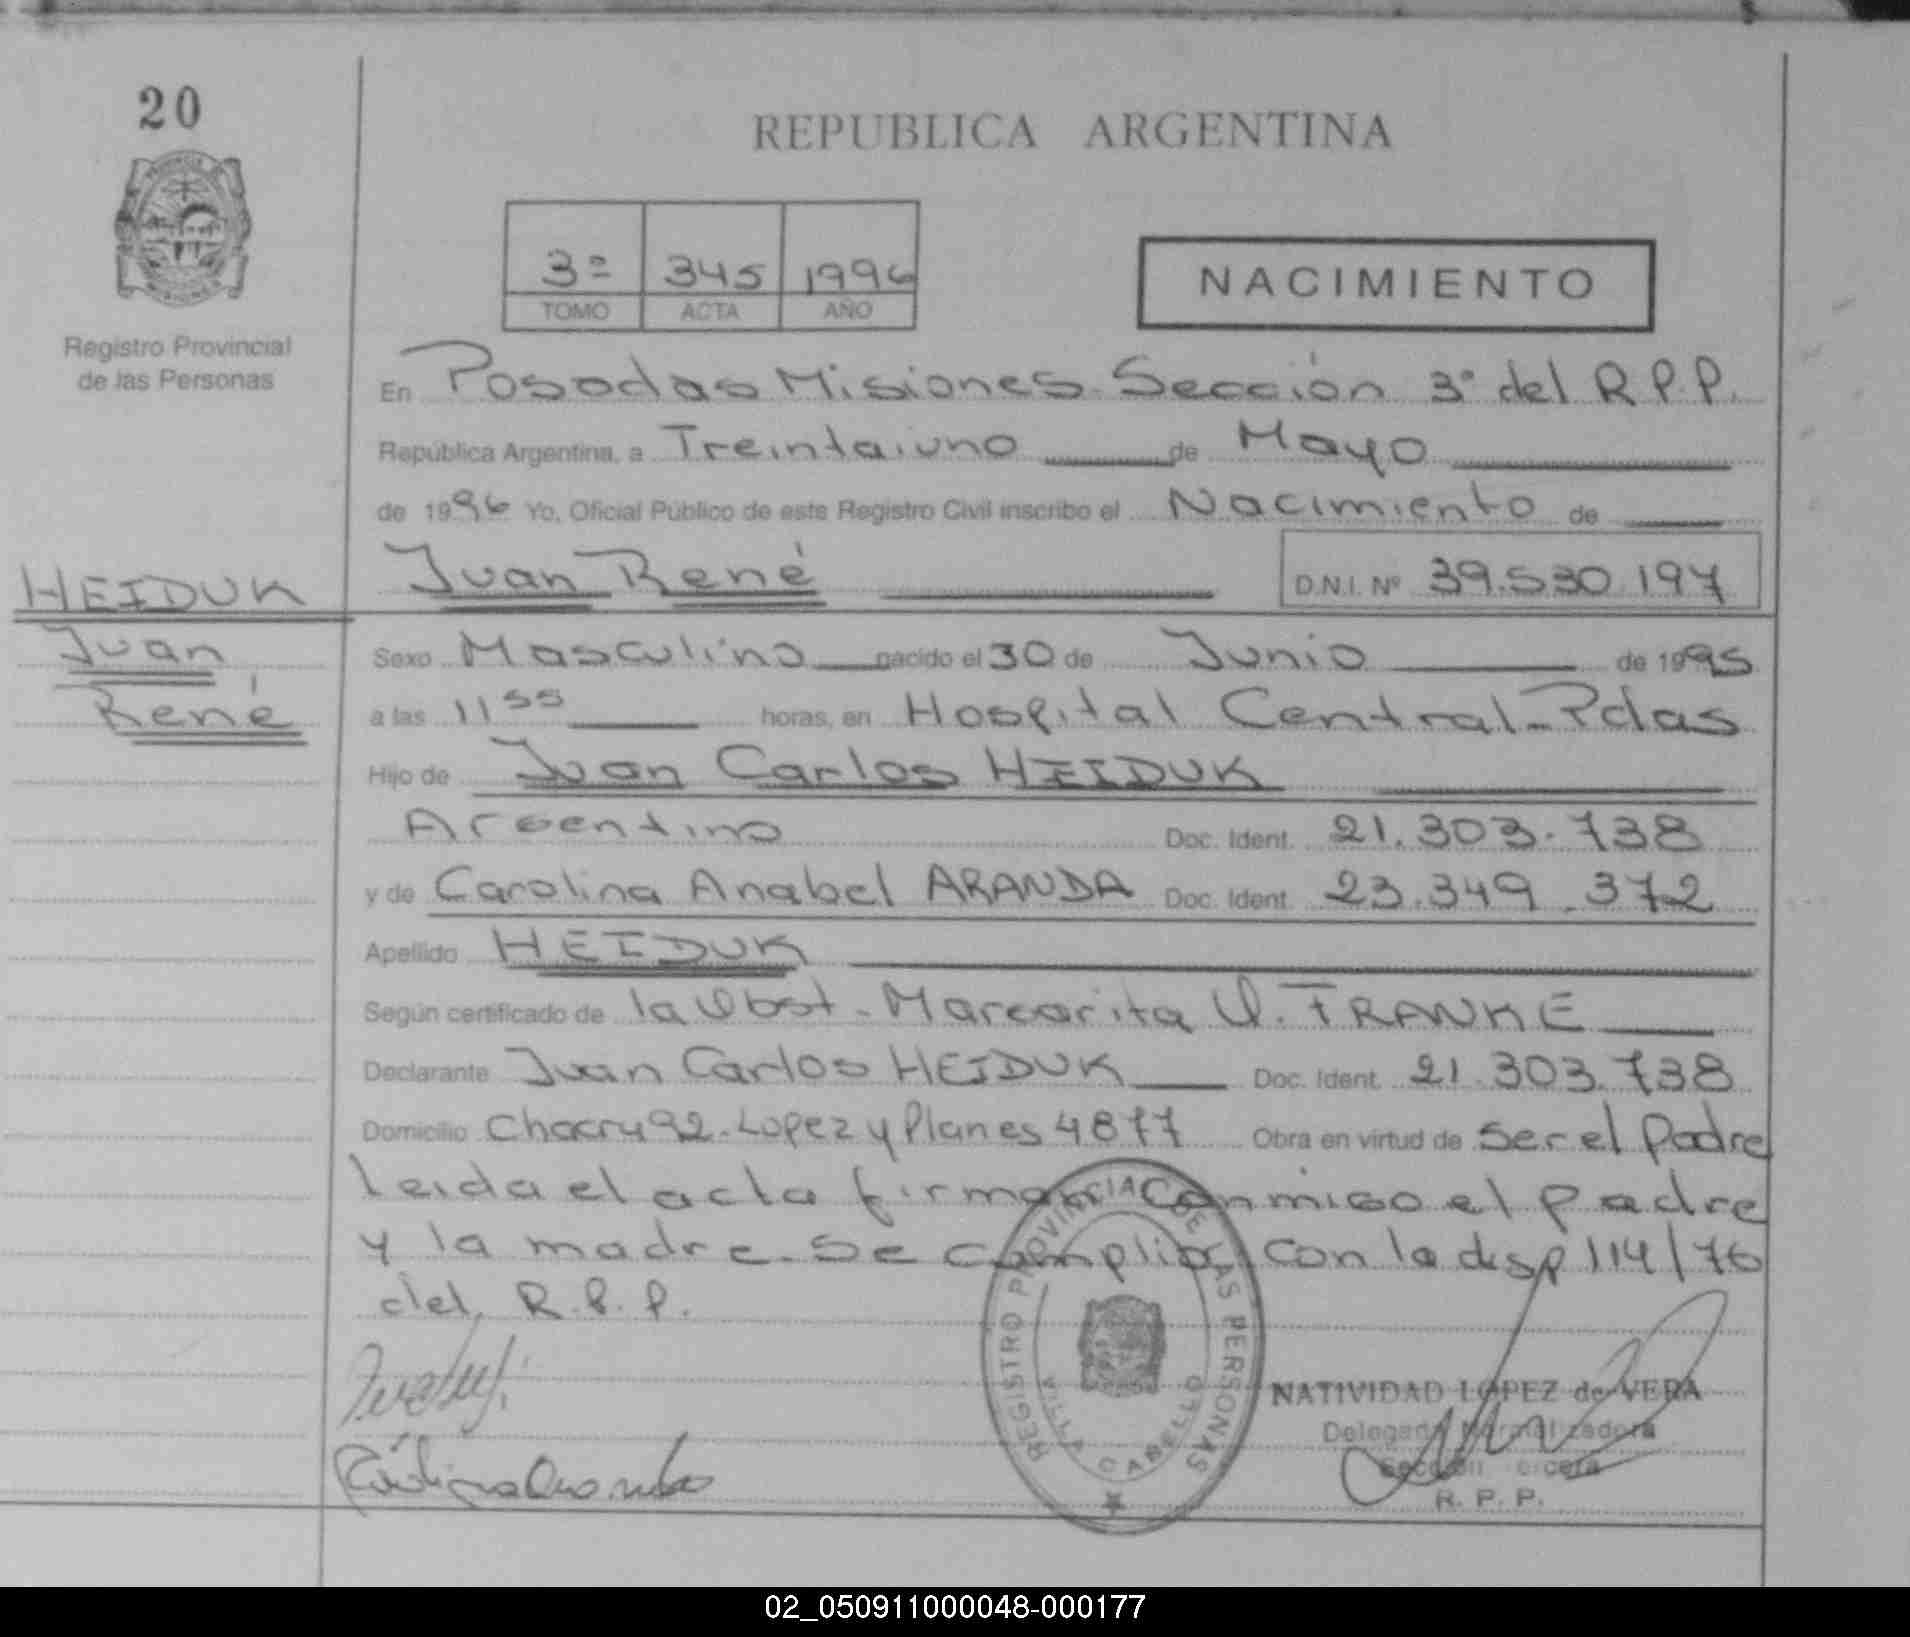 20
REPUBLICA ARGENTINA
3º 345 1996
TOMO ACTA AÑO
NACIMIENTO
Registro Provincial
de las Personas
En Posadas Misiones Sección 3º del R.P.P.
República Argentina, a Treintaiuno de Mayo
de 1996 Yo, Oficial Público de este Registro Civil inscribo el Nacimiento de
HEIDUK
Juan René D.N.I. Nº 39.530.197
Juan
Sexo Masculino nacido el 30 de Junio de 1995
René
a las 11 55 horas, en Hospital Central-Pdas
Hijo de Juan Carlos HEIDUK
Argentino Doc. Ident. 21.303.738
y de Carolina Anabel ARANDA Doc. Ident. 23.349.372
Apellido HEIDUK
Según certificado de la Obst. Margarita O. FRANKE
Declarante Juan Carlos HEIDUK Doc. Ident. 21.303.738
Domicilio Chacra 92-Lopez y Planes 4877 Obra en virtud de ser el Padre
leida el acta firman conmigo el padre
y la madre. Se cumplio con la disp 114/76
del R.P.P.
REGISTRO PROVINCIAL DE LAS PERSONAS
VILLA CABELLO
NATIVIDAD LOPEZ de VERA
Delegada Normalizadora
Sección Tercera
R. P. P.
02_050911000048-000177